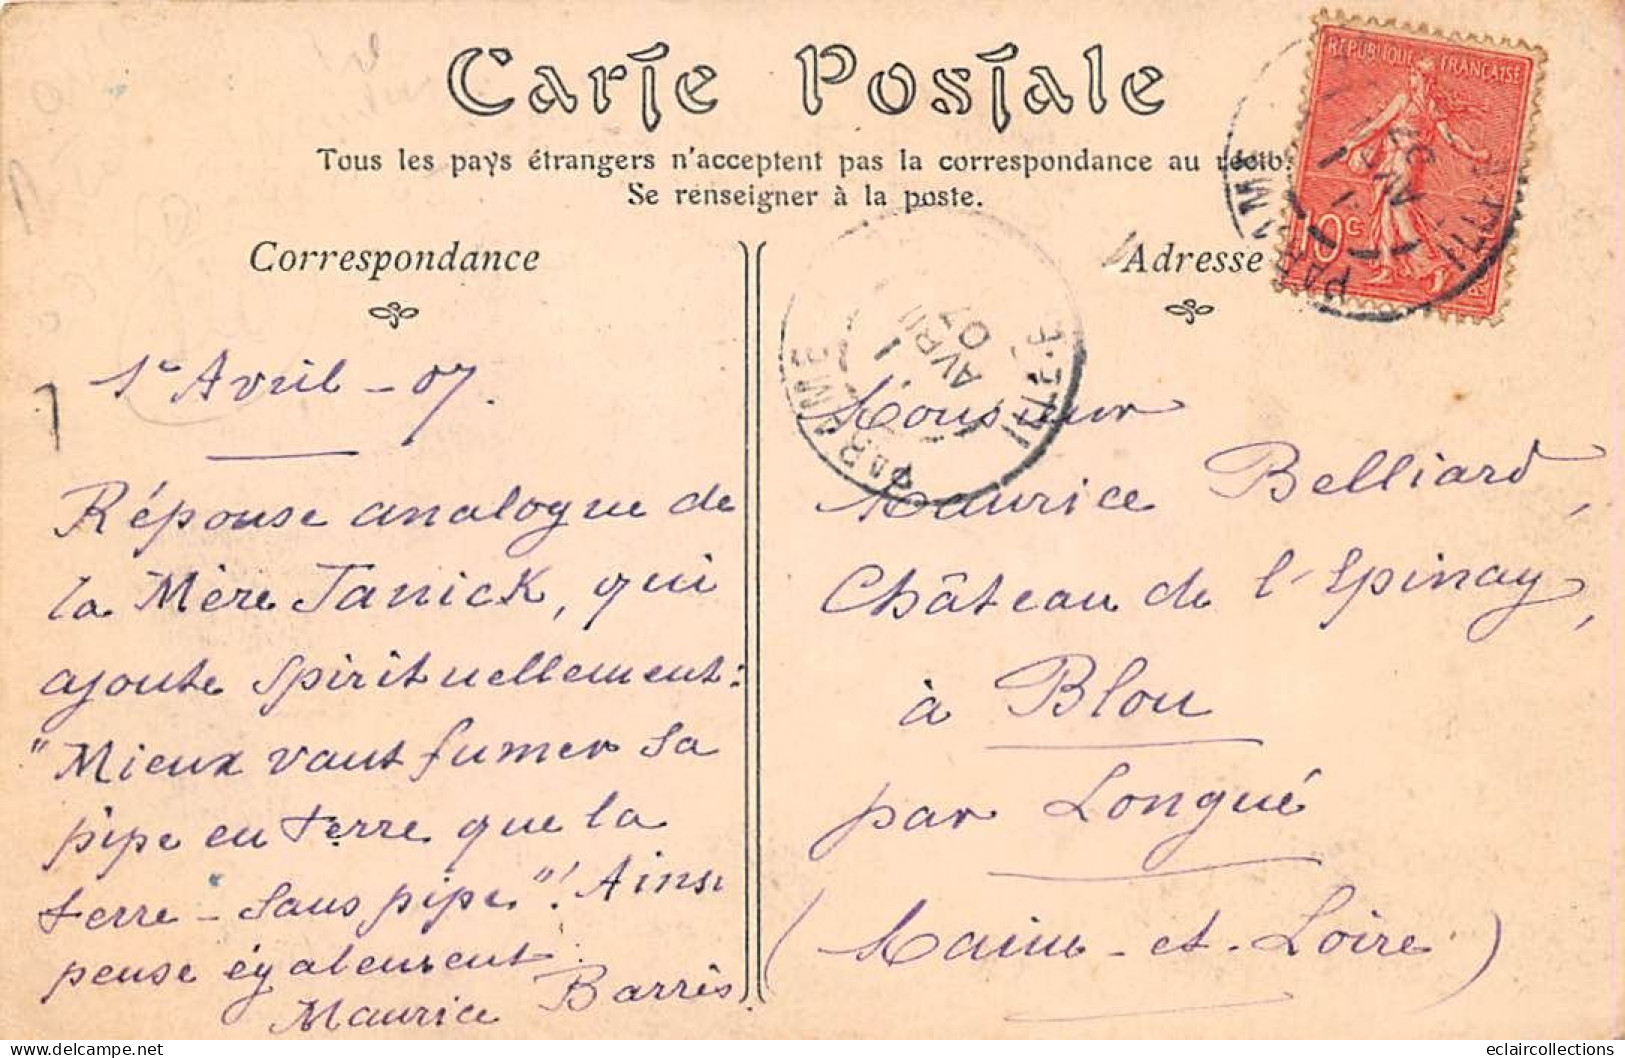 Carte Postale
Tous les pays étrangers n'acceptent pas la correspondance au recto.
Se renseigner à la poste.
Correspondance
Adresse
REPUBLIQUE FRANÇAISE
10c
PARAMÉ
1
AVRIL
07
ILLE-&
1er Avril - 07.
Réponse analogue de
la Mère Janick, qui
ajoute spirituellement :
"Mieux vaut fumer sa
pipe en terre que la
terre - sans pipe"! Ainsi
pense également
Maurice Barrès
Monsieur
Maurice Belliard,
Château de l'Epinay,
à Blou
par Longué
(Maine-et-Loire)
eclaircollections